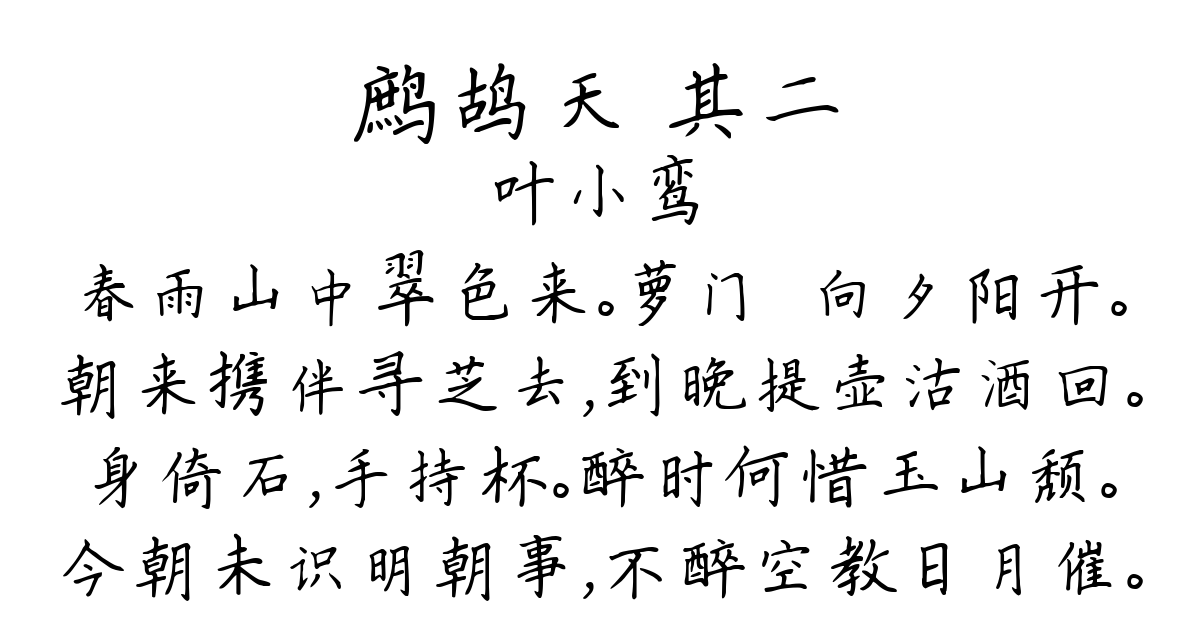 鹧鸪天 其二
叶小鸾
春雨山中翠色来。萝门 向夕阳开。
朝来携伴寻芝去,到晚提壶沽酒回。
身倚石,手持杯。醉时何惜玉山颓。
今朝未识明朝事,不醉空教日月催。